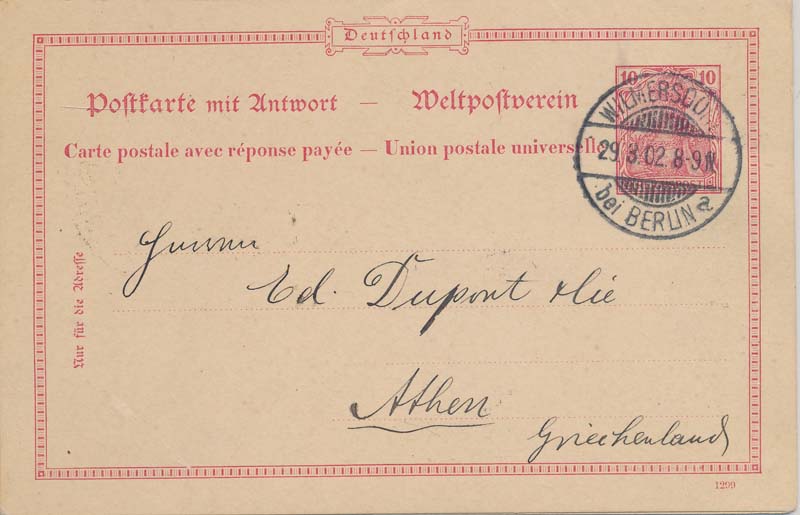 Deutschland
10 10
Postkarte mit Antwort — Weltpostverein
Carte postale avec réponse payée — Union postale universelle
WILMERSDO
29.3.02.8-9N.
bei BERLIN a
Nur für die Adresse
Herren
Ed. Dupont & Cie
Athen
Griechenland
1299